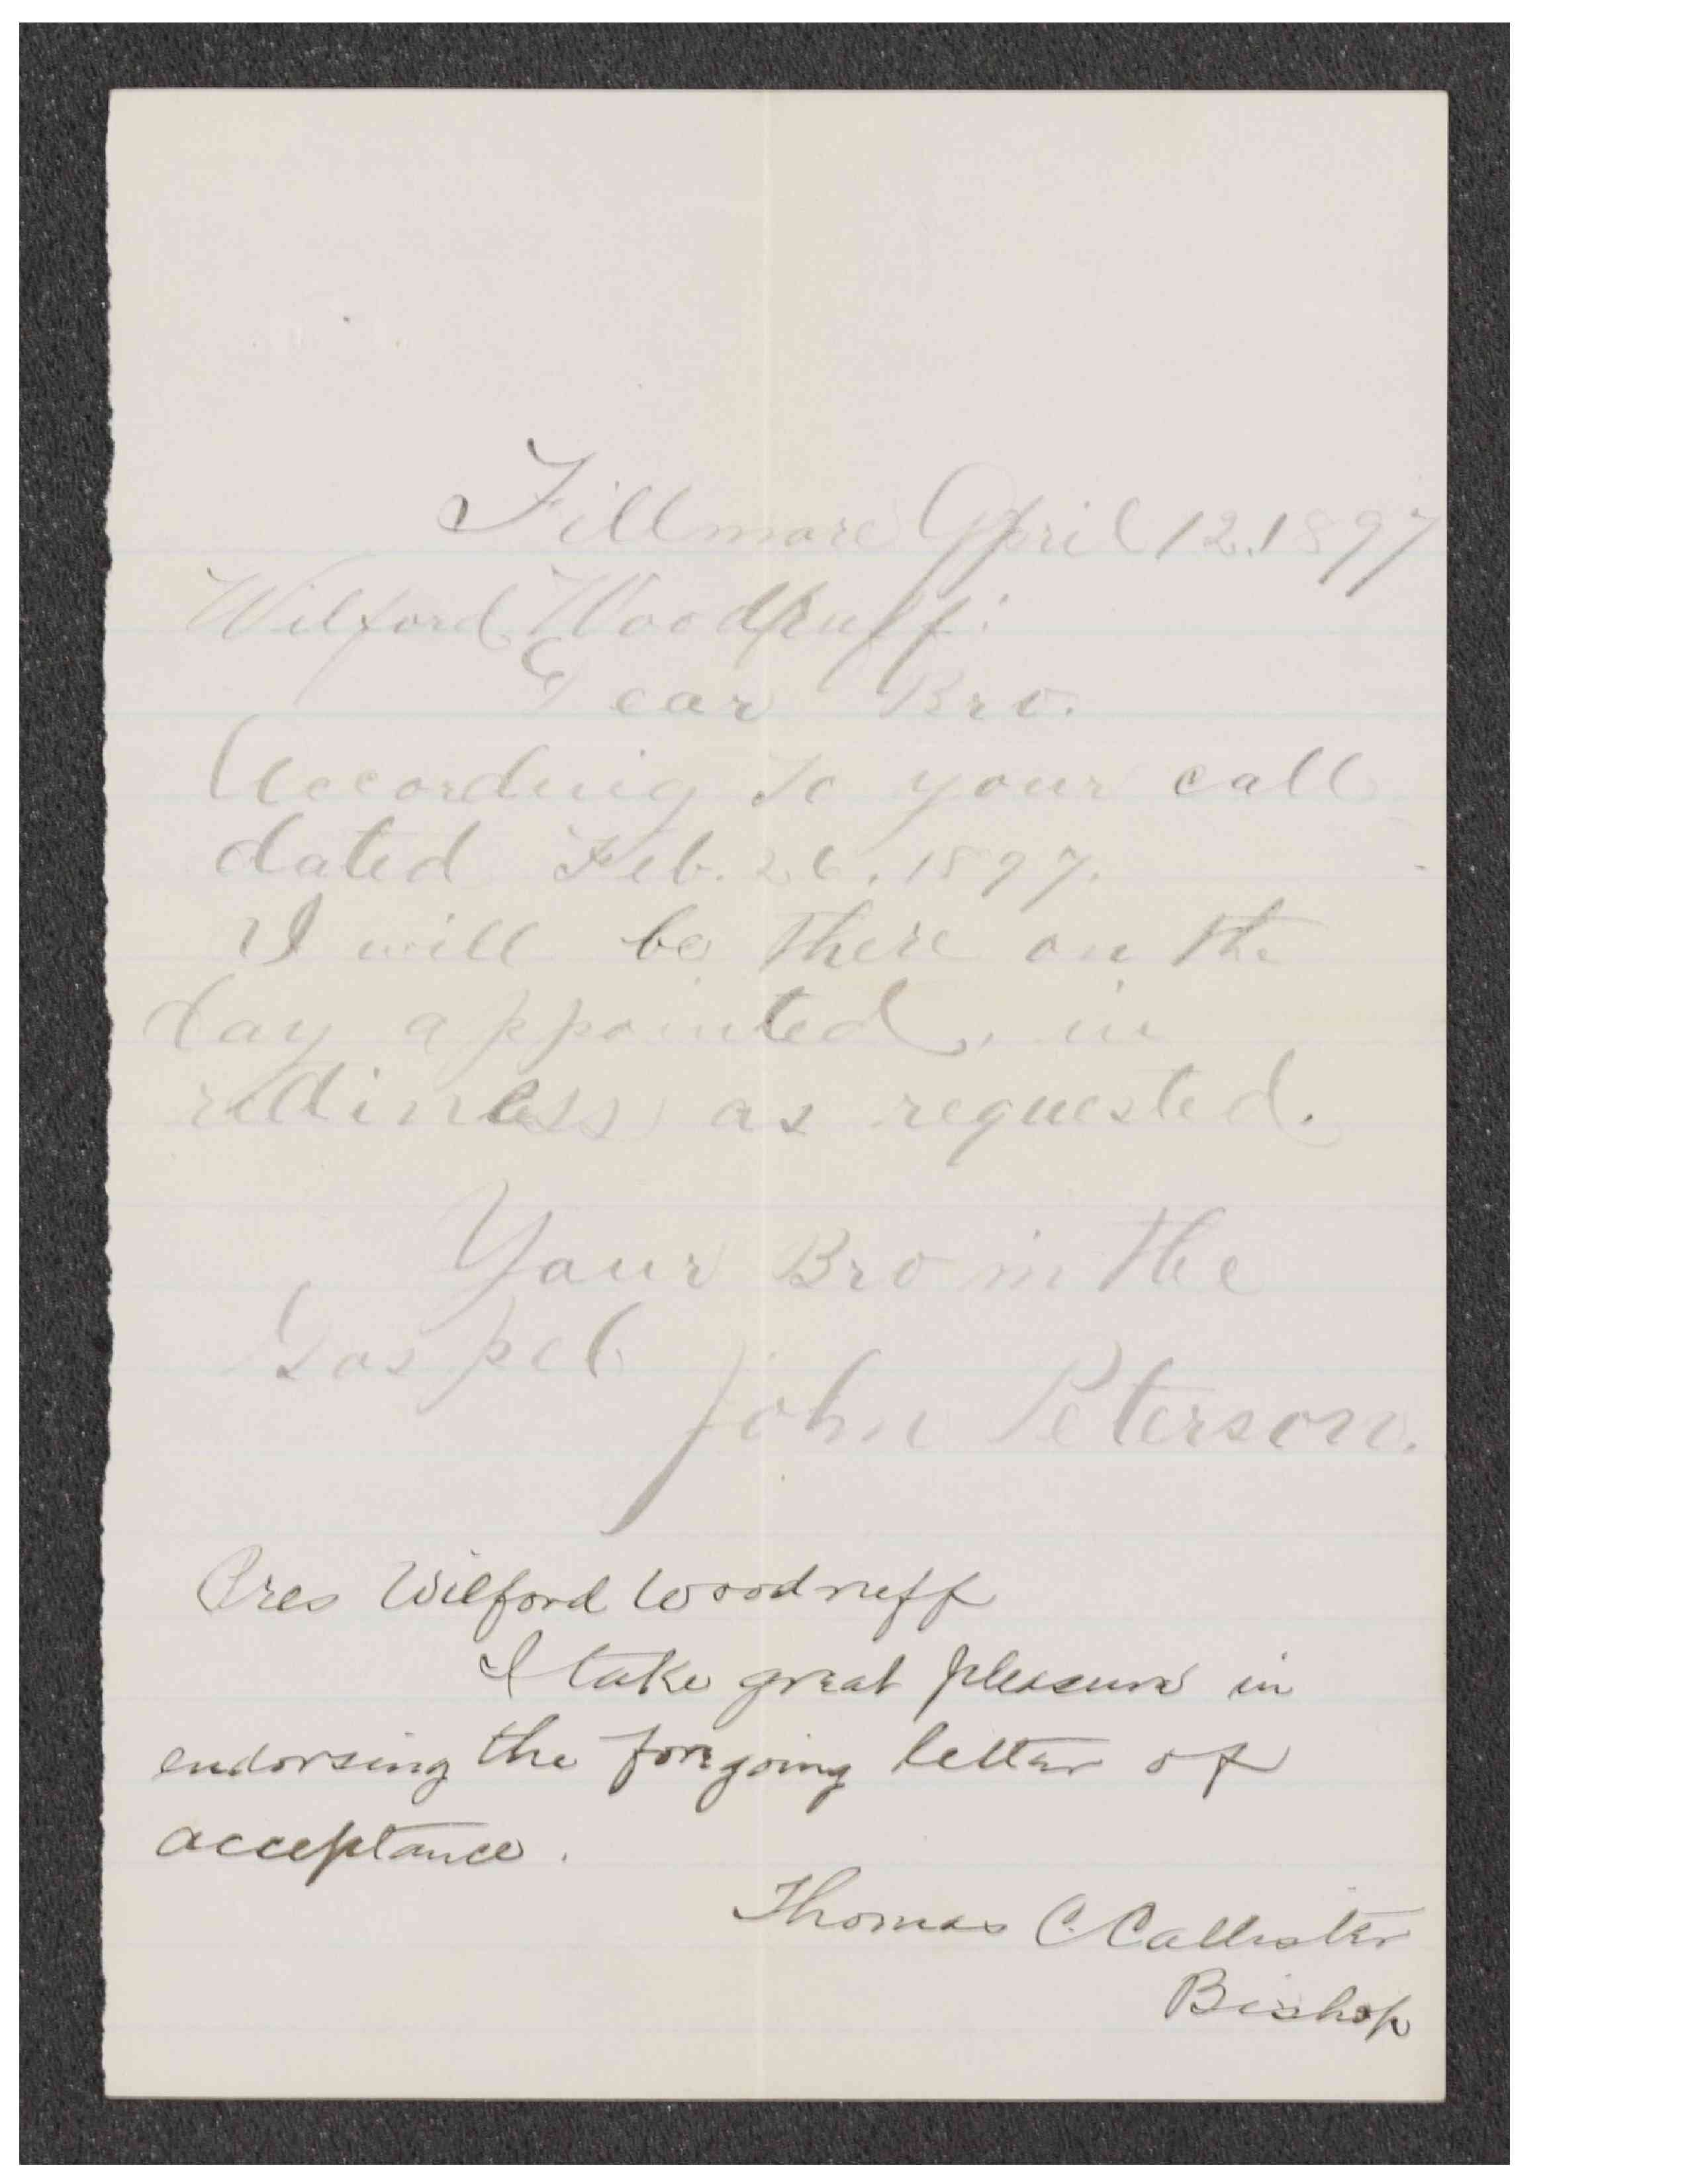 Fillmore April 12, 1897
Wilford Woodruff:
Dear Bro.
According to your call
dated Feb. 26, 1897.
I will be there on the
day appointed, in
rediness as requested.
Your Bro in the
Gospel
John Peterson.
Pres Wilford Woodruff
I take great pleasure in
endorsing the foregoing letter of
acceptance.
Thomas C. Callister
Bishop